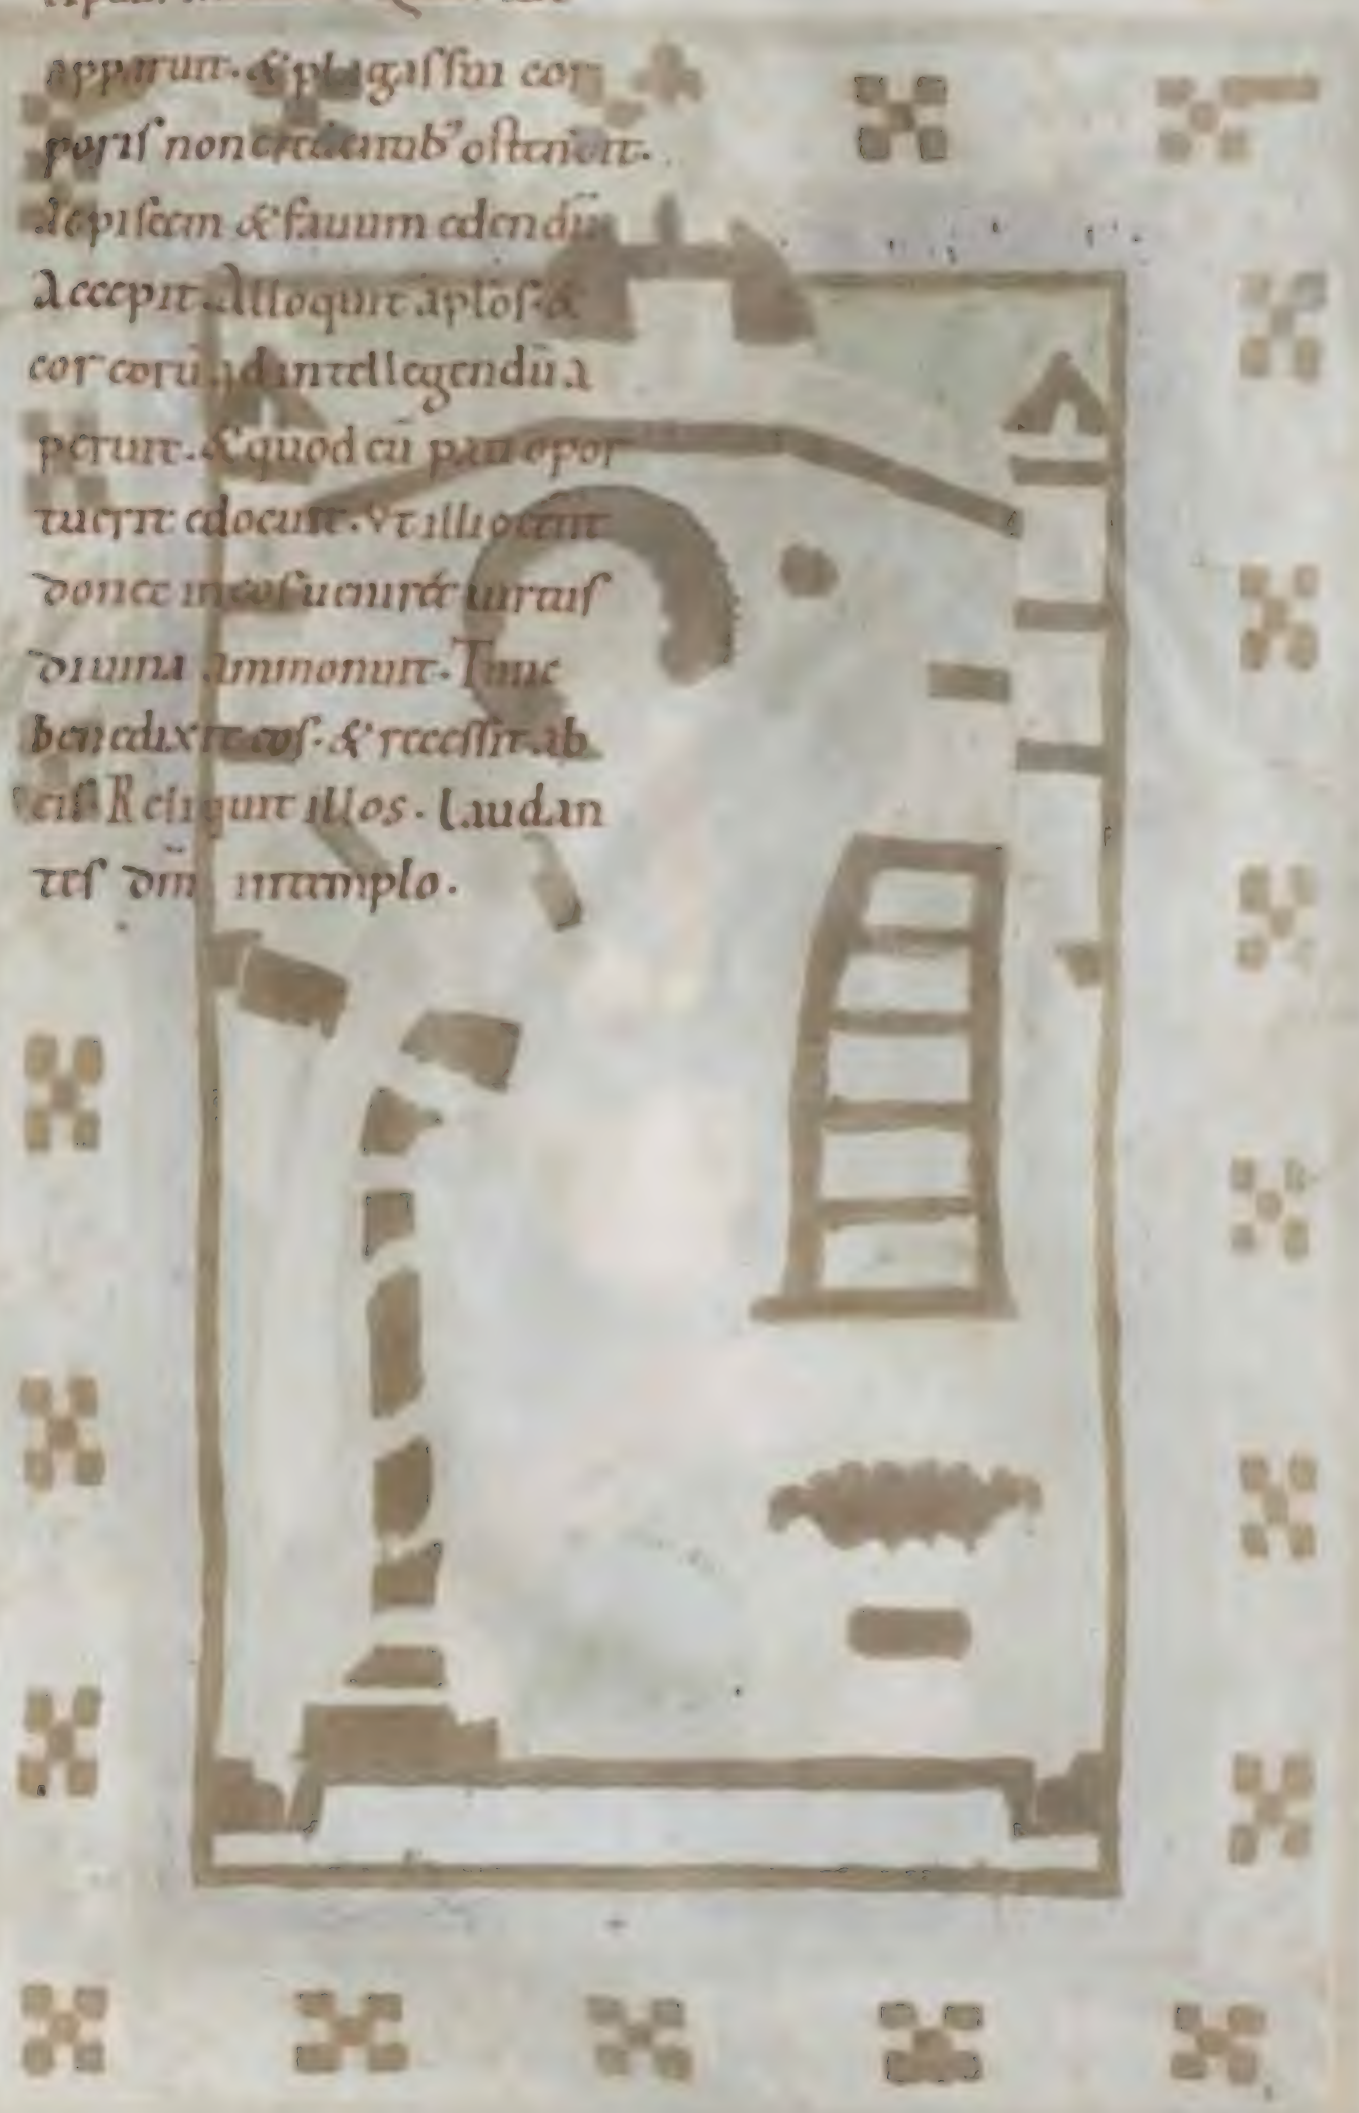 apparuit. & plagas sui cor
poris non credentib' ostendit.
Ac piscem & fauum edendū
Accepit. Alloquit aplōs. &
cor eorū ad intellegendū a
peruit. & quod eū pati opor
tuerit edocuit. Vt illi
donec in eos ueniret uirtus
diuina ammonuit. Tunc
benedixit eos. & recessit ab
eis. Reliquit illos. Laudan
tes dm̄ in templo.